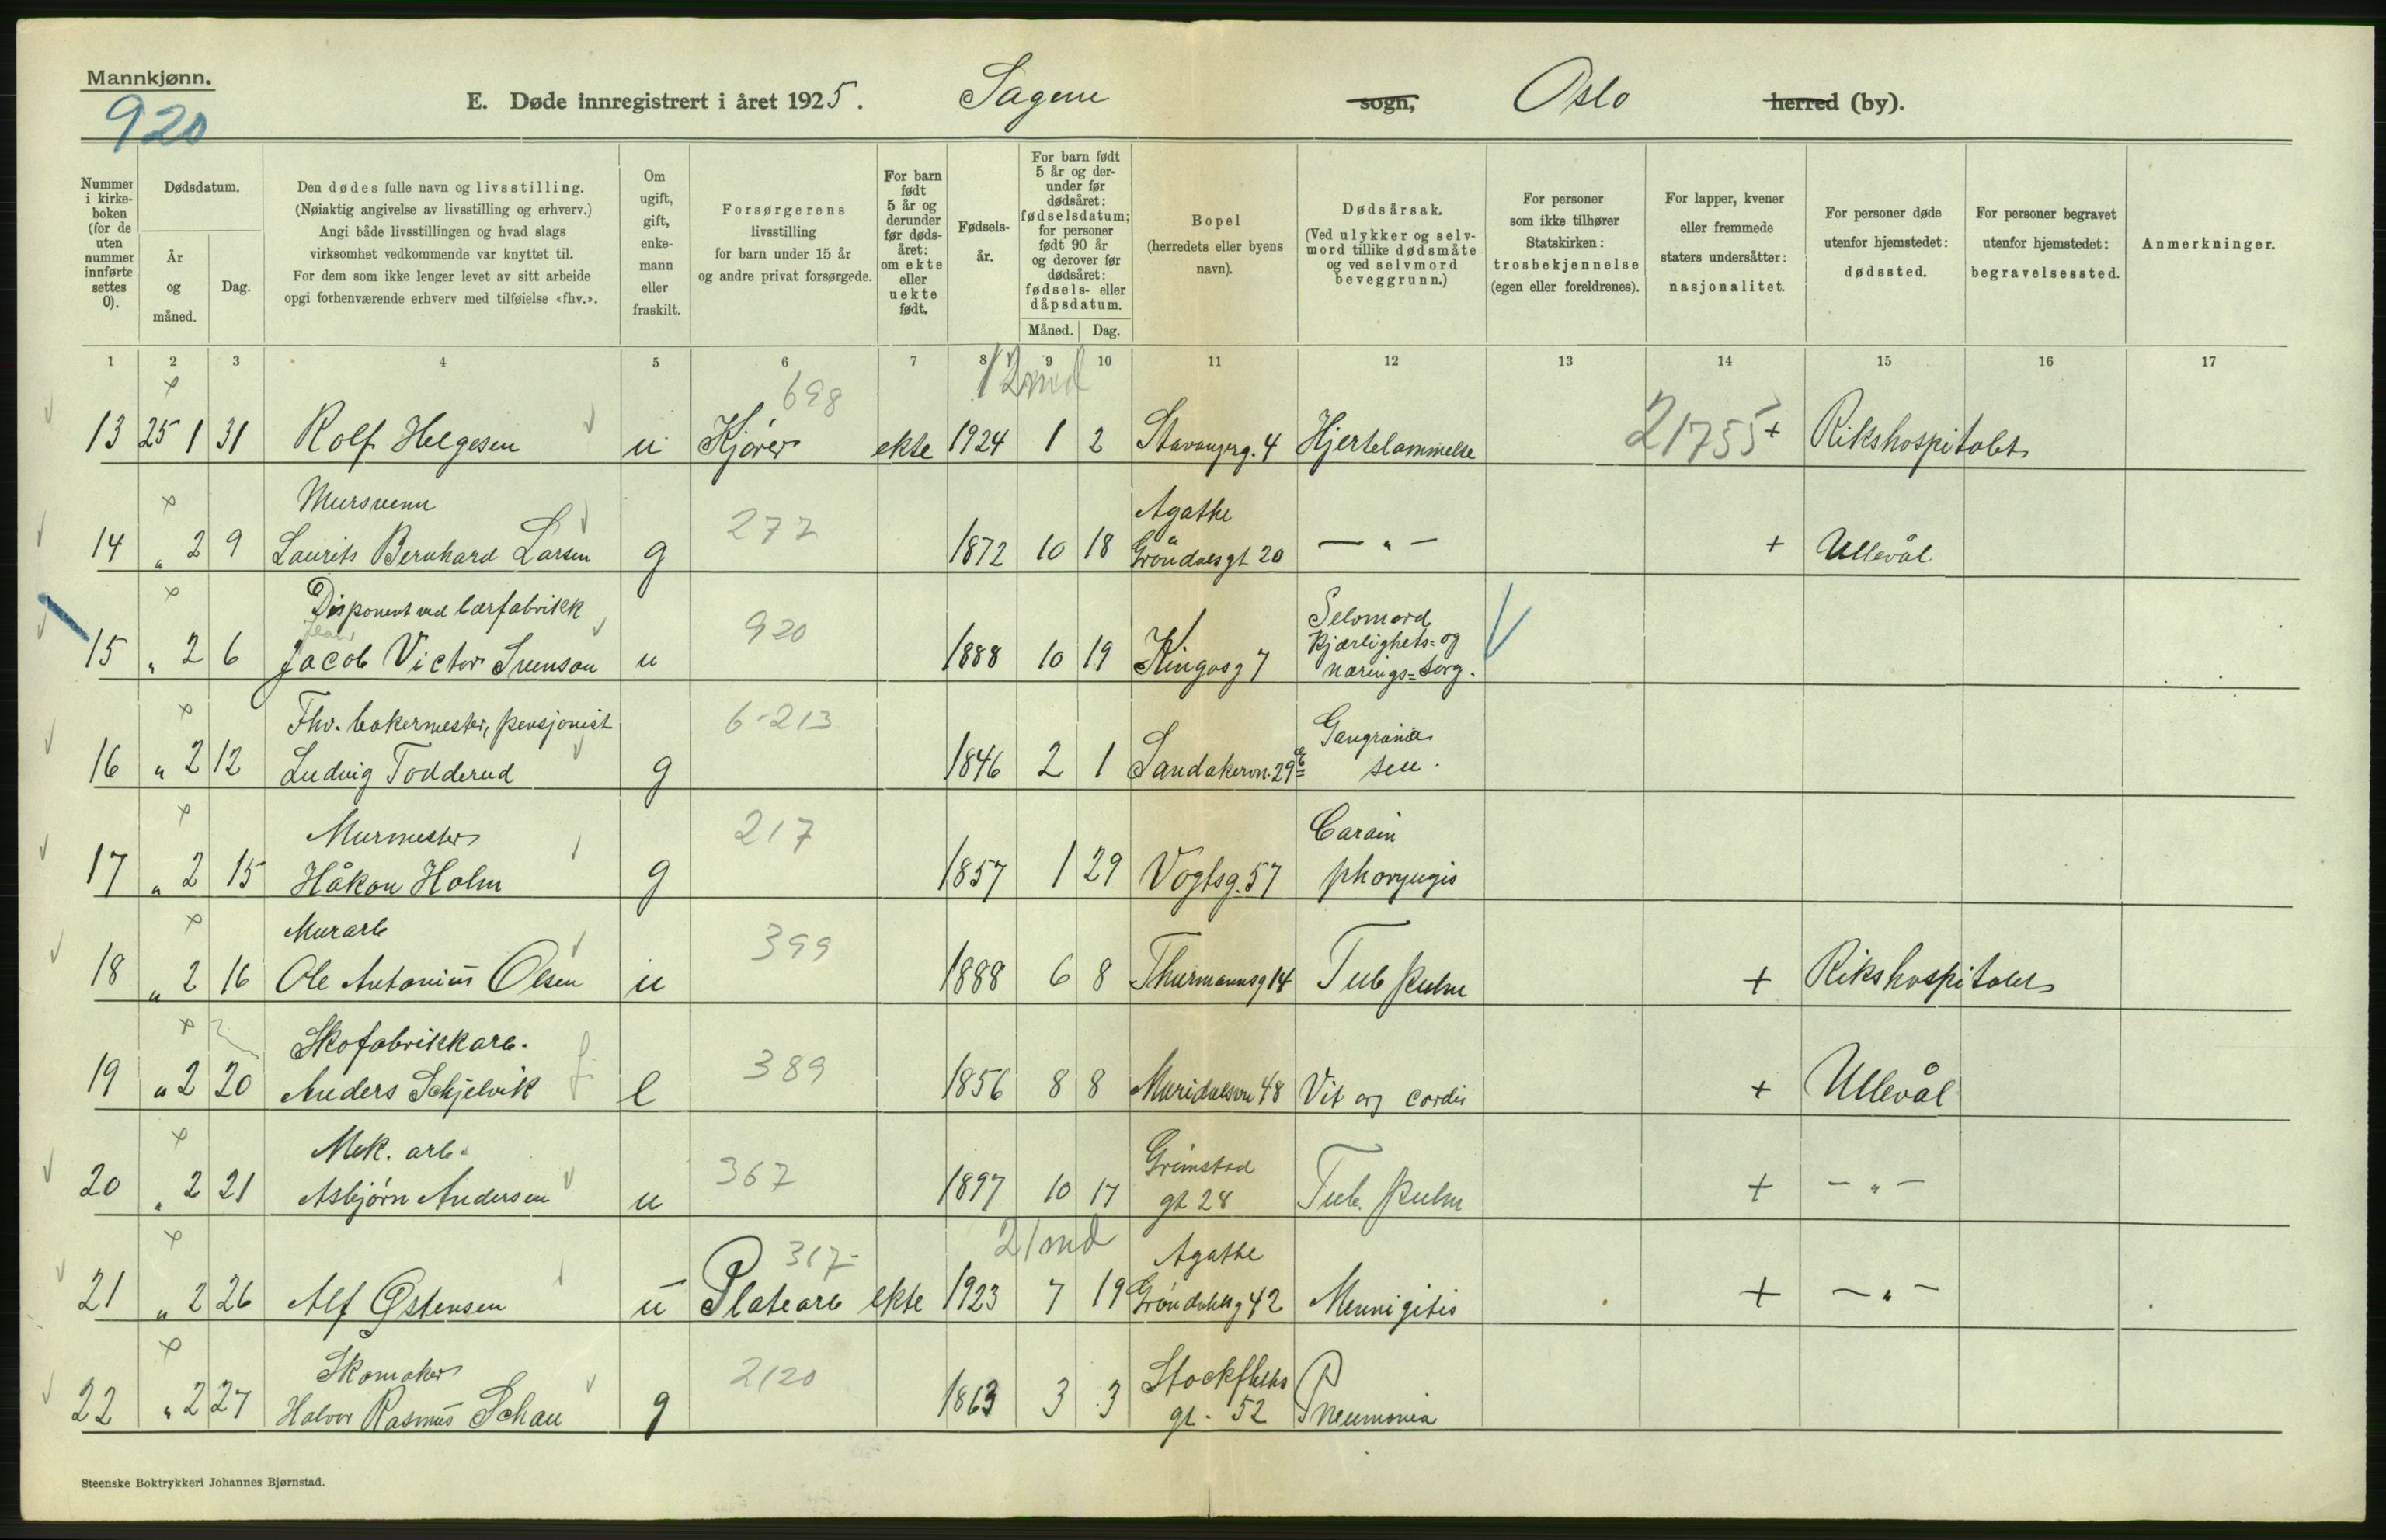 Mannkjønn.
920
E. Døde innregistrert i året 1925. Sagene sogn, Oslo herred (by).
Nummer i kirke- boken (for de uten nummer innførte settes 0).
Dødsdatum.
År og måned.
Dag.
Den dødes fulle navn og livsstilling.
(Nøiaktig angivelse av livsstilling og erhverv.)
Angi både livsstillingen og hvad slags
virksomhet vedkommende var knyttet til.
For dem som ikke lenger levet av sitt arbeide
opgi forhenværende erhverv med tilføielse «fhv.».
Om ugift, gift, enke- mann eller fraskilt.
Forsørgerens
livsstilling
for barn under 15 år
og andre privat forsørgede.
For barn født 5 år og derunder før døds- året: om ekte eller uekte født.
Fødsels- år.
For barn født 5 år og der- under før dødsåret: fødselsdatum; for personer født 90 år og derover før dødsåret: fødsels- eller dåpsdatum.
Måned. Dag.
Bopel
(herredets eller byens
navn).
Dødsårsak.
(Ved ulykker og selv-
mord tillike dødsmåte
og ved selvmord
beveggrunn.)
For personer
som ikke tilhører
Statskirken:
trosbekjennelse
(egen eller foreldrenes).
For lapper, kvener
eller fremmede
staters undersåtter:
nasjonalitet.
For personer døde
utenfor hjemstedet:
dødssted.
For personer begravet
utenfor hjemstedet:
begravelsessted.
Anmerkninger.
1 2 3 4 5 6 7 8 9 10 11 12 13 14 15 16 17
698 12 md
13 25 1 31 Rolf Helgesen u Kjører ekte 1924 1 2 Stavangerg. 4 Hjertelammelse 21755 + Rikshospitalet
Mursvenn 277 Agathe
14 " 2 9 Laurits Bernhard Larsen g 1872 10 18 Grøndalsgt 20 — " — + Ullevål
Disponent ved lærfabrikk 920 Selvmord
kjærlighets- og
15 " 2 6 Jacob Victor Svenson u 1888 10 19 Kingosg 7 nærings-sorg.
Fhv. bakermester, pensjonist 6-213 Gangræna
16 " 2 12 Ludvig Todderud g 1846 2 1 Sandakervn. 29 sen.
Murmester 217
17 " 2 15 Håkon Holm g 1857 1 29 Vogtsg. 57 pharyngis
Murarb 399
18 " 2 16 Ole Antonius Olsen u 1888 6 8 Thurmannsg 14 Tub pulm + Rikshospitalet
Skofabrikkarb. 389
19 " 2 20 Anders Schjelvik f e 1856 8 8 Maridalsvn 48 Vit org cordis + Ullevål
Mek. arb. 367 Grimstad
20 " 2 21 Asbjørn Andersen u 1897 10 17 gt 28 Tub. pulm + — " —
317 21 md Agathe
21 " 2 26 Alf Østensen u Platearb ekte 1923 7 19 Grøndahlsg 42 Mennigitis + — " —
Skomaker 2120 Stockfleths
22 " 2 27 Halvor Rasmus Schau g 1863 3 3 gt. 52 Pneumonia
Steenske Boktrykkeri Johannes Bjørnstad.